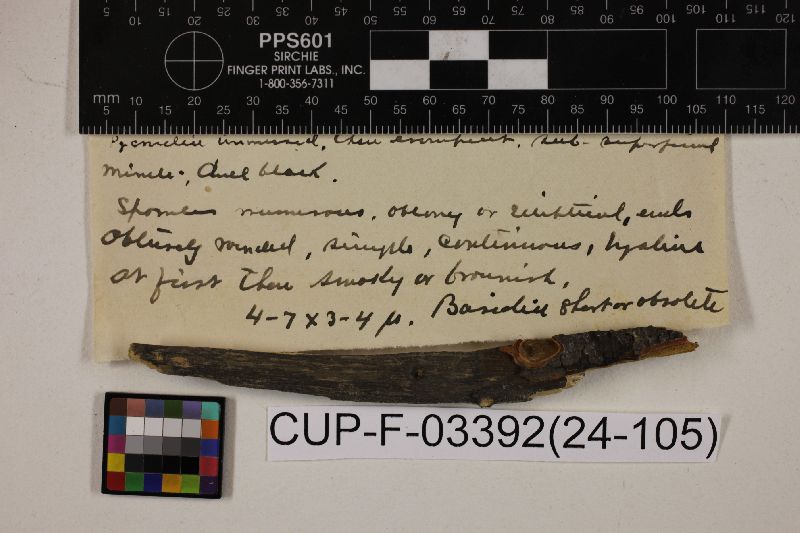 5 10 20 30 40 50 60 70 80 90 100 105 110 115 120
PPS601
SIRCHIE
FINGER PRINT LABS., INC.
1-800-356-7311
mm 5 10 20 30 40 50 60 70 80 90 100 105 110 115 120
immersed, then erumpent, sub-superficial
minute, dull black.
Sporules numerous, oblong or elliptical, ends
obtusely rounded, simple, continuous, hyaline
at first then smoky or brownish,
4-7 x 3-4 µ. Basidia short or obsolete
CUP-F-03392(24-105)